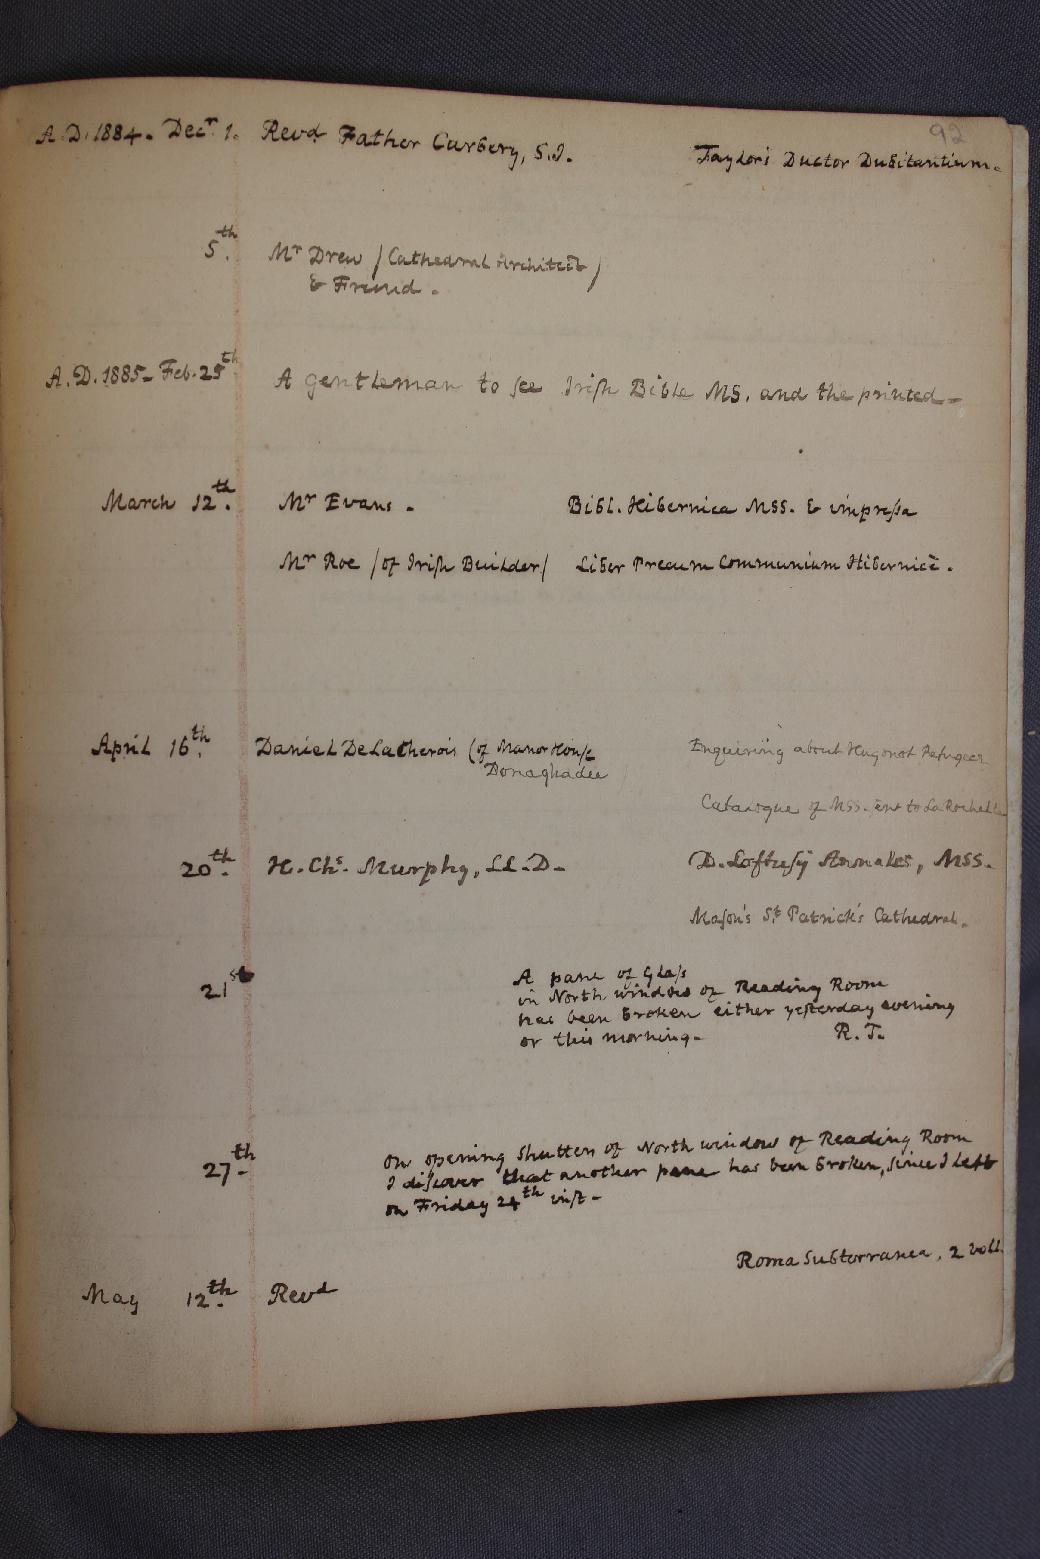 92
A.D. 1884. Decr. 1. Revd. Father Carbery, S.J. Taylor's Ductor Dubitantium.
5th. Mr Drew /Cathedral Architect/
& Friend.
A.D. 1885. Feb. 25th A gentleman to see Irish Bible MS. and the printed.
March 12th. Mr Evans. Bibl. Hibernica MSS. & impressa
Mr Roe /of Irish Builder/ Liber Precum Communium Hibernicè.
April 16th. Daniel DeLaCherois (of Manor House Enquiring about Hugonot Refugees
Donaghadee)
Catalogue of MSS. sent to La Rochelle
20th. H. Chs. Murphy, LL.D. D. Loftusij Annales, MSS.
Mason's St. Patrick's Cathedral.
21st A pane of Glass
in North window of Reading Room
has been broken either yesterday evening
or this morning. R. T.
27th. On opening Shutters of North window of Reading Room
I discover that another pane has been broken, since I left
on Friday 24th inst.
Roma Subterranea, 2 voll.
May 12th. Revd